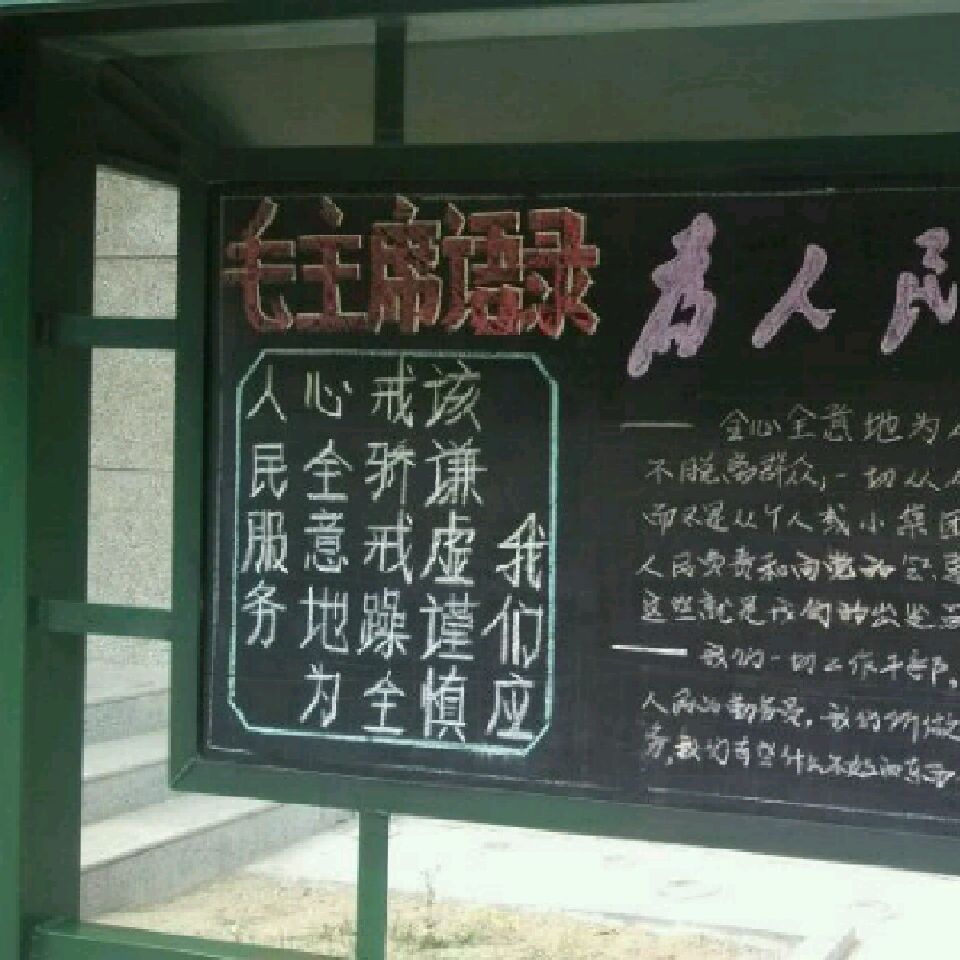 毛主席语录
我们应
该谦虚谨慎
戒骄戒躁全
心全意地为
人民服务
为人民
—— 全心全意地为人
不脱离群众,一切从人
而不是从个人或小集团
人民负责和向党的
这些就是我们的出发
—— 我们一切工作干部,
人民的勤务员,我们所做
务,我们有些什么不好的东西